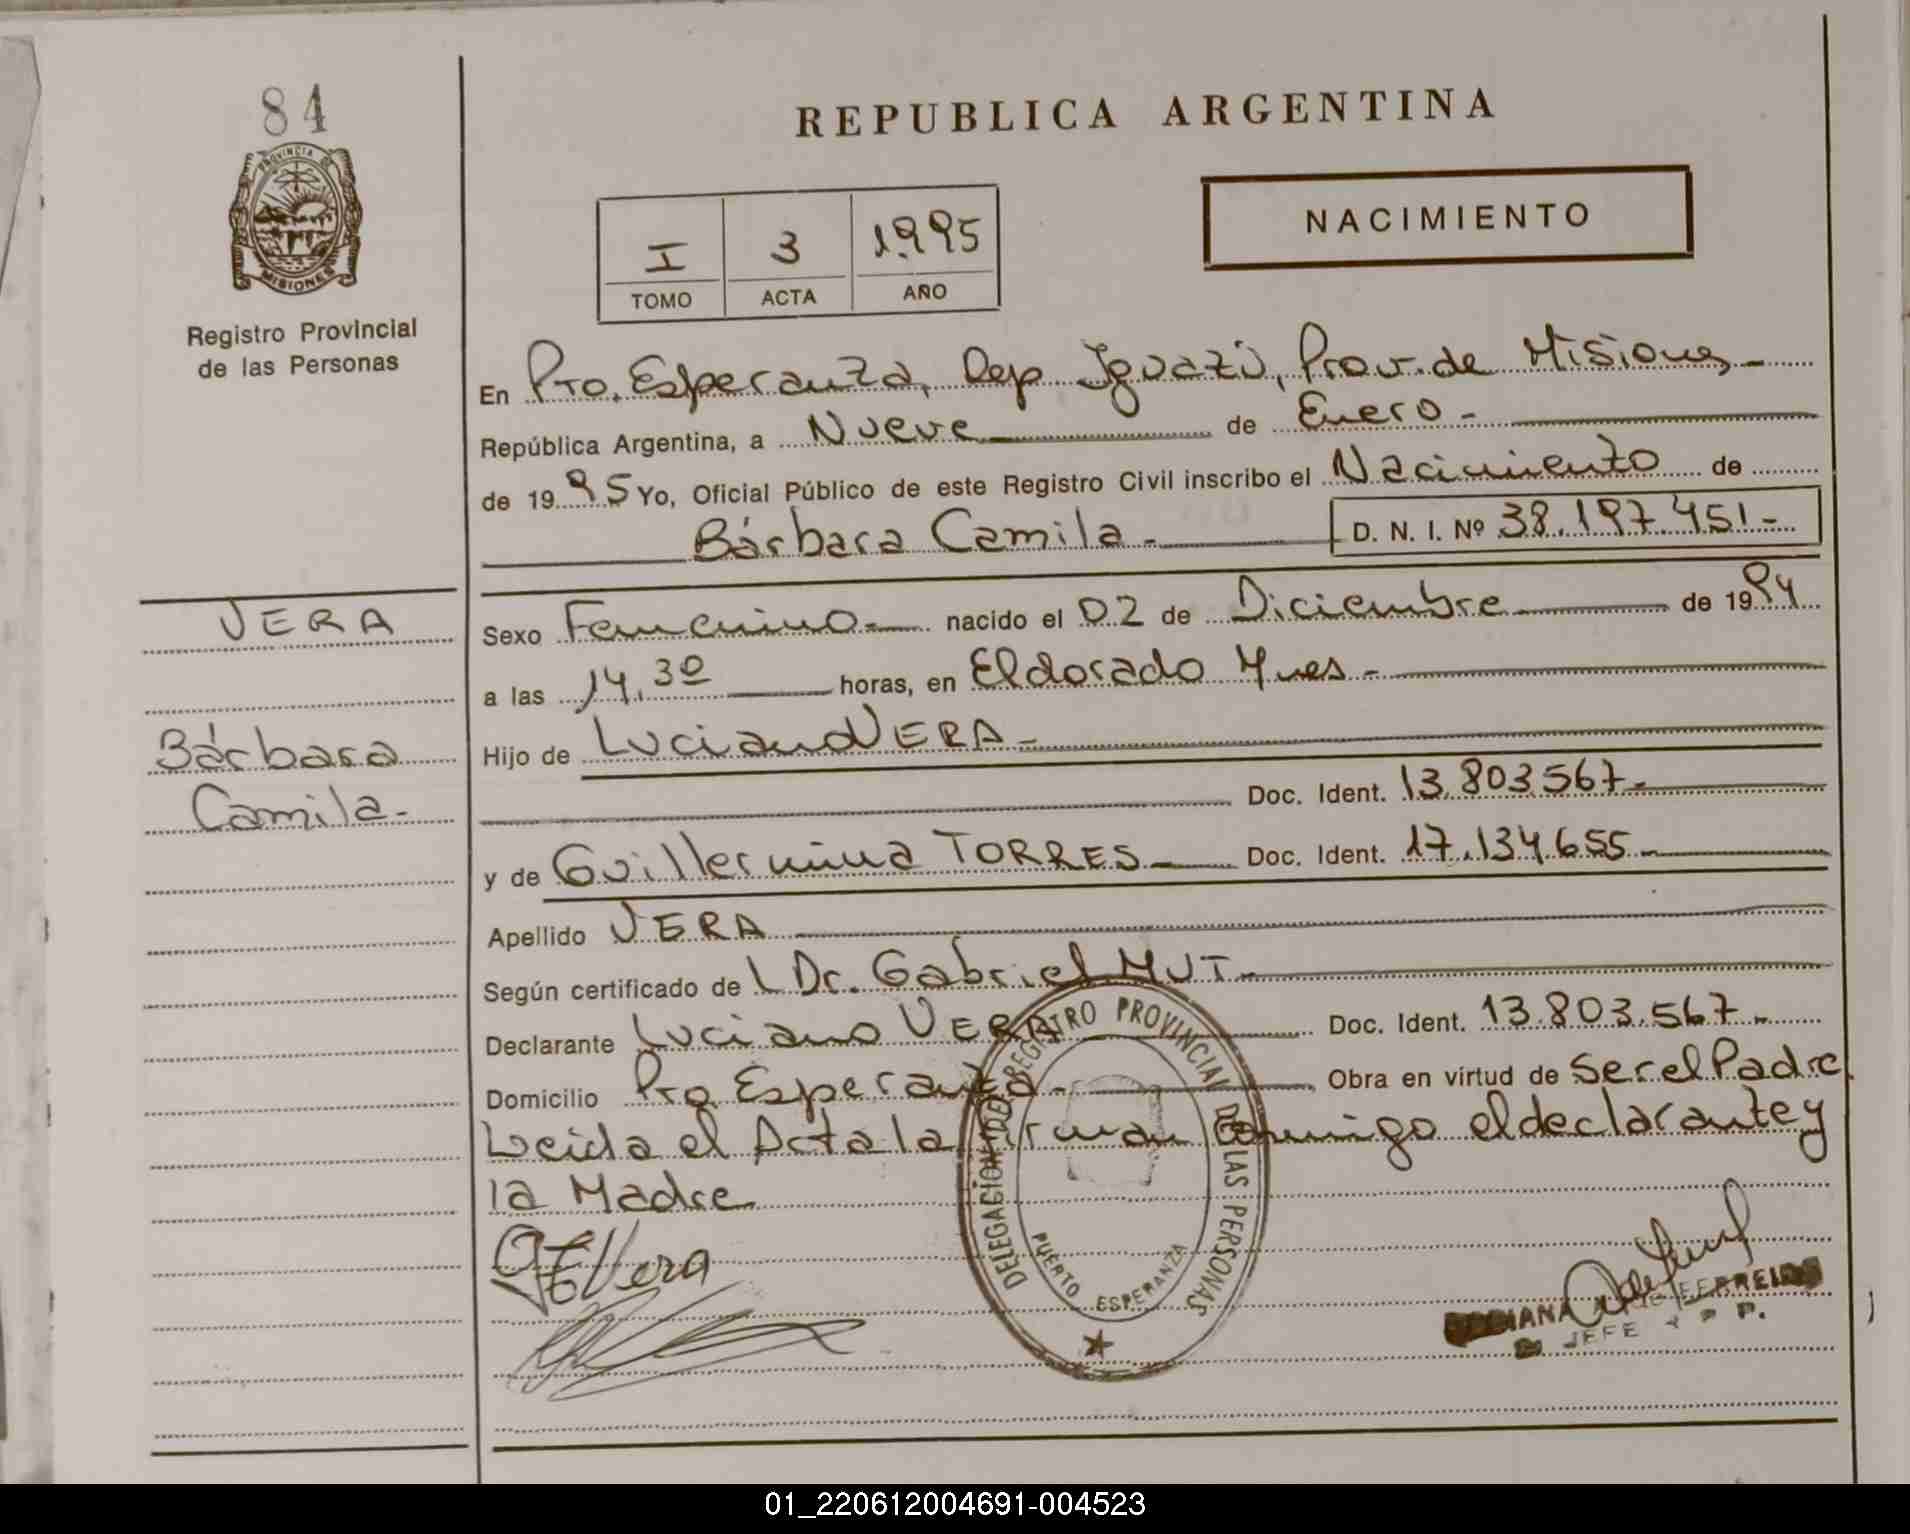 84
PROVINCIA DE
MISIONES
Registro Provincial
de las Personas
VERA
Bárbara
Camila-
REPUBLICA ARGENTINA
NACIMIENTO
I 3 1.995
TOMO ACTA AÑO
En Pto. Esperanza, Dep. Iguazú, Prov. de Misiones-
República Argentina, a Nueve de Enero-
de 1995 Yo, Oficial Público de este Registro Civil inscribo el Nacimiento de
Bárbara Camila- D. N. I. Nº 38.197.451-
Sexo Femenino- nacido el 02 de Diciembre de 1994
a las 14.30 horas, en Eldorado Mnes-
Hijo de Luciano VERA-
Doc. Ident. 13.803.567-
y de Guillermina TORRES- Doc. Ident. 17.134.655-
Apellido VERA
Según certificado de L Dr. Gabriel MUT-
Declarante Luciano VERA Doc. Ident. 13.803.567-
Domicilio Pto Esperanza- Obra en virtud de ser el Padre.
Leida el Acta la firman conmigo el declarante y
la Madre
DELEGACION DE REGISTRO PROVINCIAL DE LAS PERSONAS
PUERTO ESPERANZA
Vera
de FERREIRA
JEFE
01_220612004691-004523